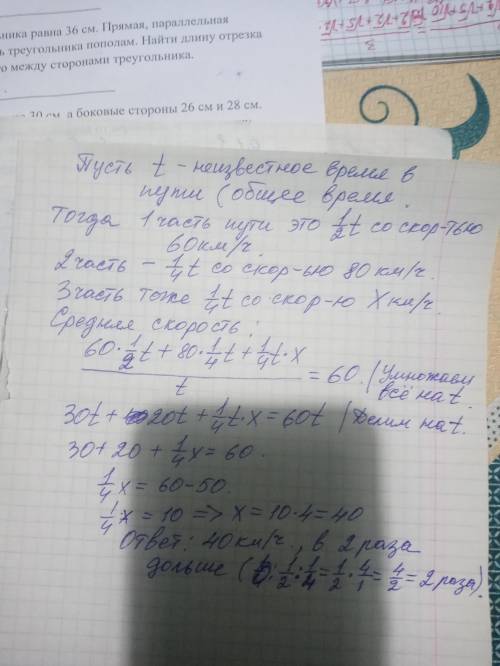 ьника равна 36 см. Прямая, параллельная
ь треугольника пополам. Найти длину отрезка
о между сторонами треугольника.
30 см, а боковые стороны 26 см и 28 см.
Пусть t - неизвестное время в
пути (общее время.
Тогда 1 часть пути это 1/2 t со скор-тью
60 км/ч.
2 часть - 1/4 t со скор-ью 80 км/ч.
3 часть тоже 1/4 t со скор-ю X км/ч.
Средняя скорость:
(60·1/2 t + 80·1/4 t + 1/4 t·x)/t = 60. | Умножаем
всё на t.
30t + 20t + 1/4 t·x = 60t | Делим на t.
30 + 20 + 1/4 x = 60.
1/4 x = 60-50.
1/4 x = 10 => x = 10·4 = 40
Ответ: 40 км/ч, в 2 раза
дольше (1/2 : 1/4 = 1/2 · 4/1 = 4/2 = 2 раза).